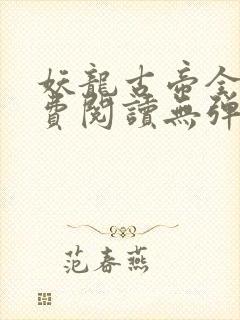 妖龍古帝全
費閱讀無彈
范春燕